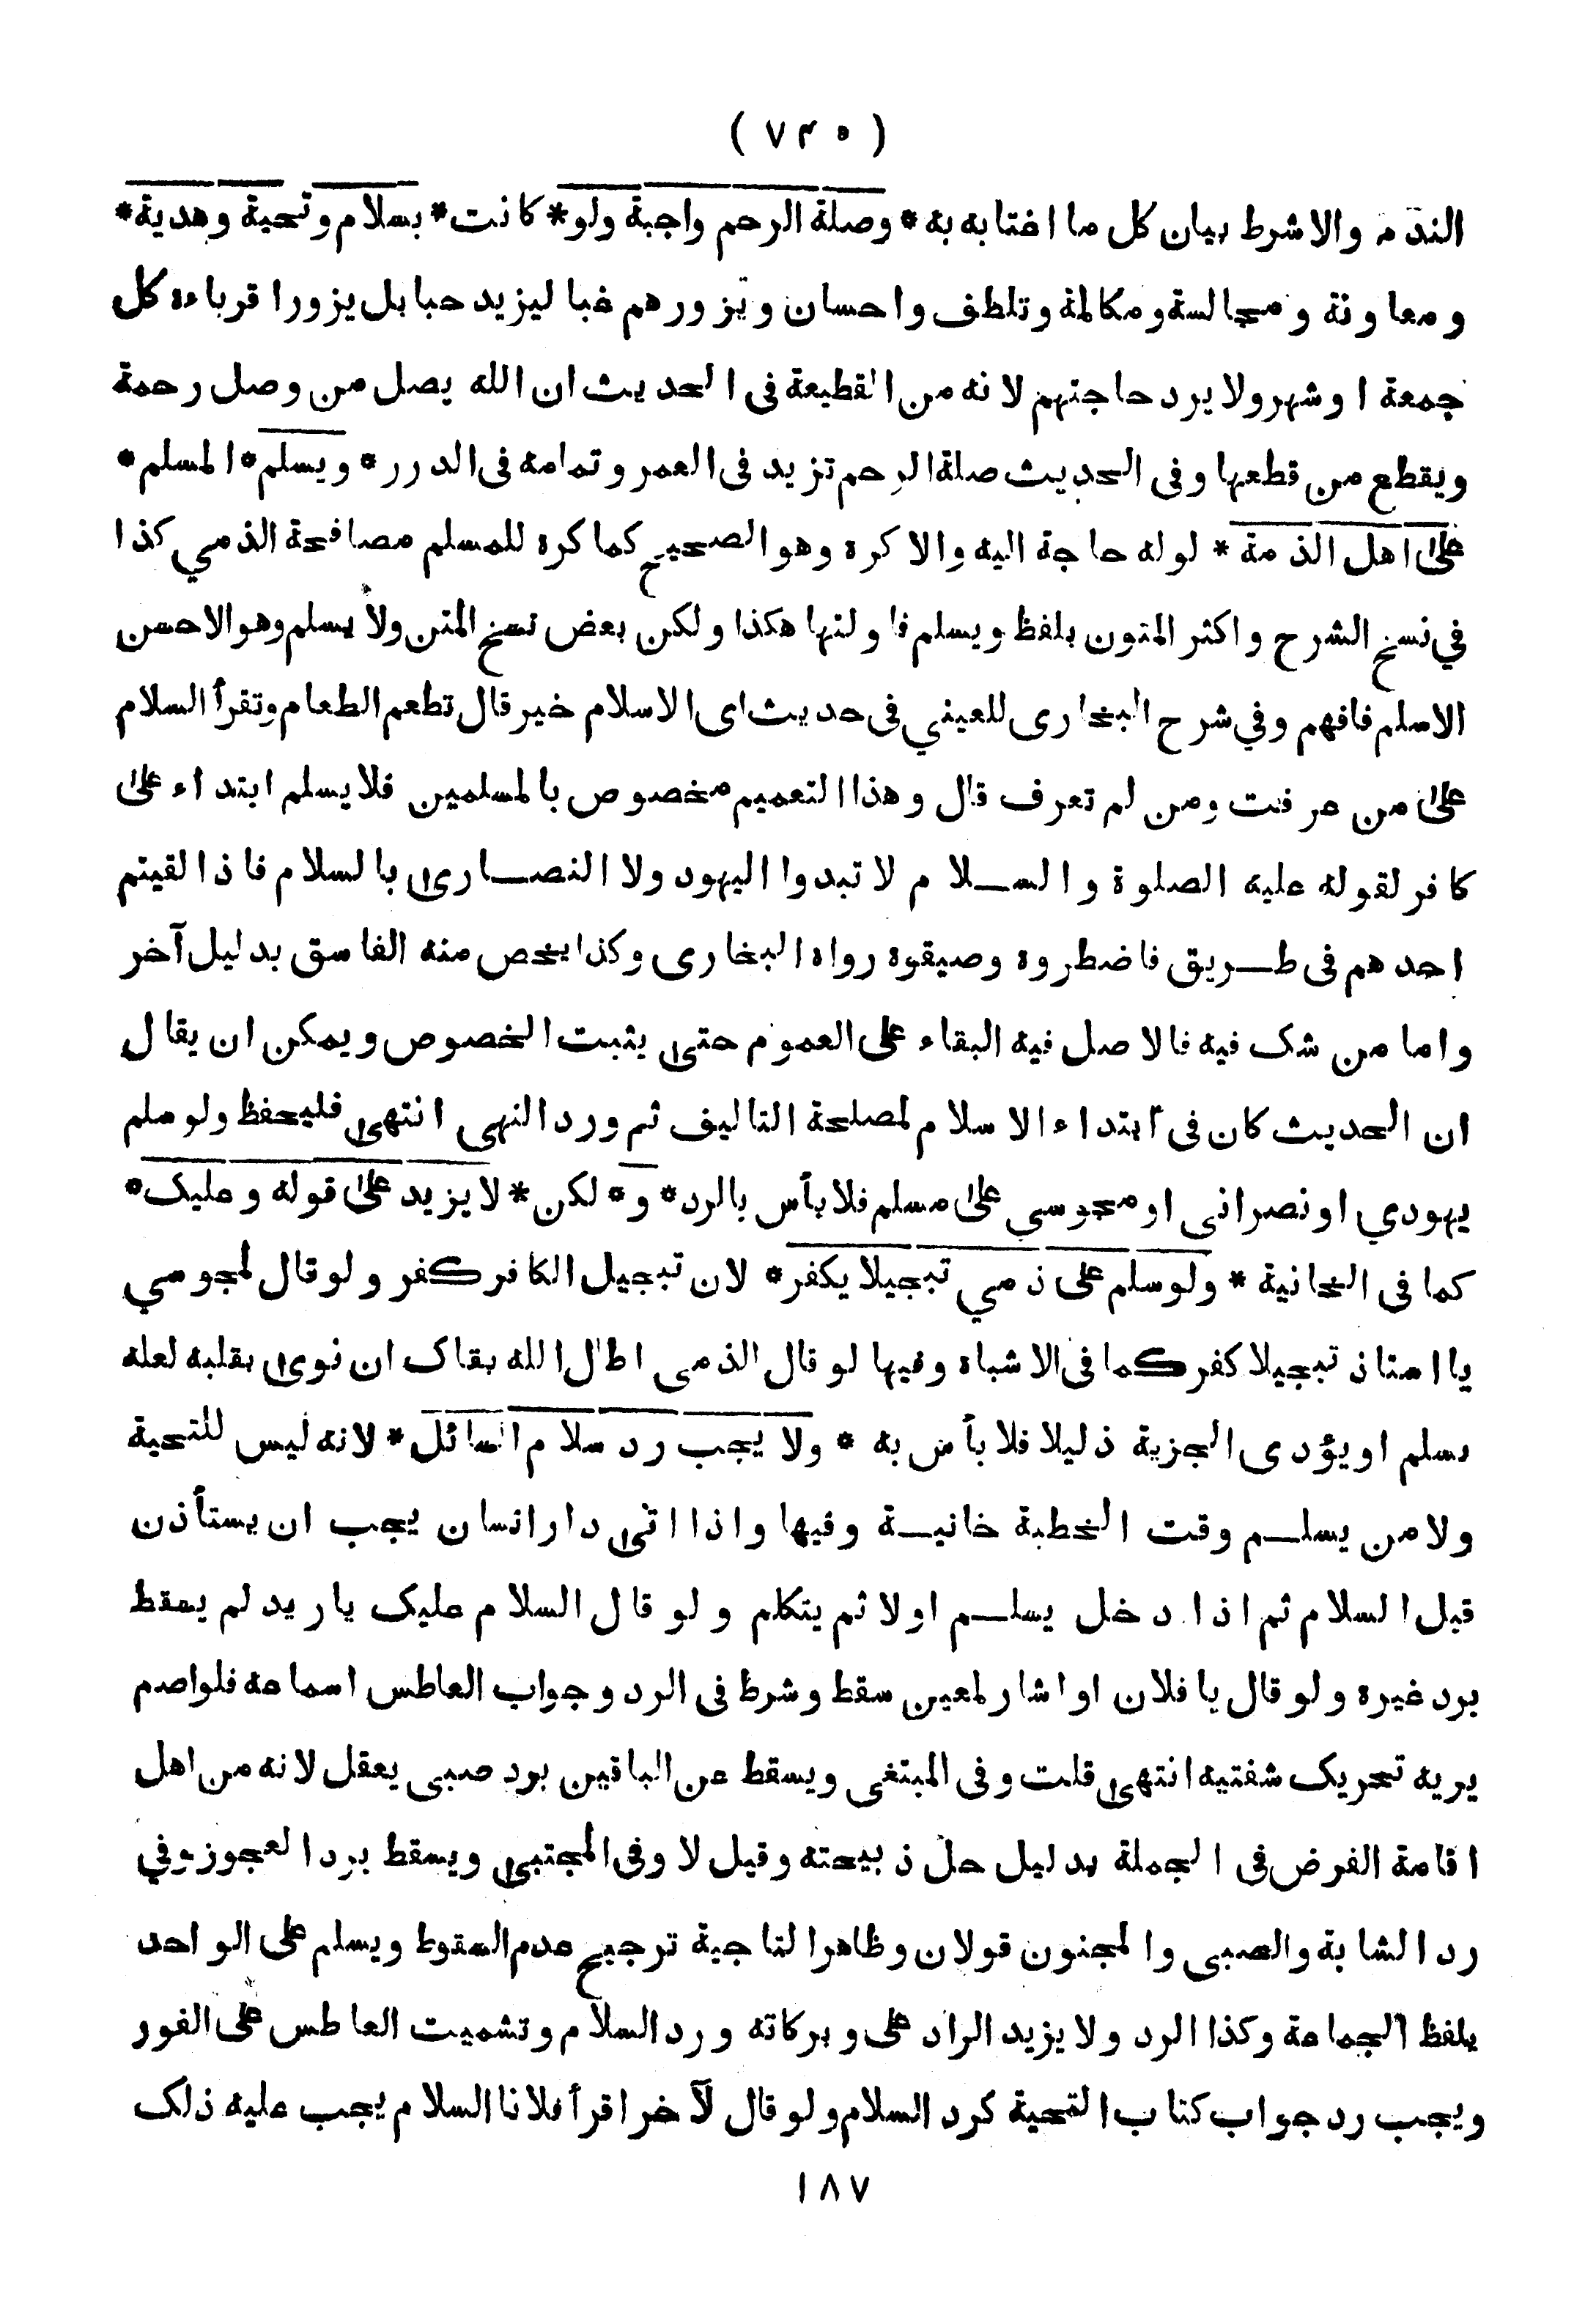 ( ٧٤٥ )
الندم والا شرط بيان كل ما اغتابه به * وصلة الرحم واجبة ولو * كانت * بسلام وتحية وهدية *
ومعاونة ومجالسة ومكالمة وتلطف واحسان ويزورهم غبا ليزيد حبا بل يزور اقرباءه كل
جمعة او شهر ولا يرد حاجتهم لانه من القطيعة فى الحديث ان الله يصل من وصل رحمة
ويقطع من قطعها وفى الحديث صلة الرحم تزيد فى العمر وتمامه فى الدرر * ويسلم * المسلم *
على اهل الذمة * لو له حاجة اليه والا كره وهو الصحيح كما كره للمسلم مصافحة الذمي كذا
في نسخ الشرح واكثر المتون بلفظ ويسلم فاولتها هكذا ولكن بعض نسخ المتن ولا يسلم وهو الاحسن
الاسلم فافهم وفي شرح البخارى للعيني فى حديث اى الاسلام خير قال تطعم الطعام وتقرأ السلام
على من عرفت ومن لم تعرف قال وهذا التعميم مخصوص بالمسلمين فلا يسلم ابتداء على
كافر لقوله عليه الصلوة والسلام لا تبدوا اليهود ولا النصارى بالسلام فاذا لقيتم
احدهم فى طريق فاضطروه وضيقوه رواه البخارى وكذا يخص منه الفاسق بدليل آخر
واما من شك فيه فالاصل فيه البقاء على العموم حتى يثبت الخصوص ويمكن ان يقال
ان الحديث كان فى ابتداء الاسلام لمصلحة التاليف ثم ورد النهى انتهى فليحفظ ولو سلم
يهودي او نصرانى او مجوسي على مسلم فلا بأس بالرد * و * لكن * لا يزيد على قوله وعليك *
كما فى الخانية * ولو سلم على ذمي تبجيلا يكفر * لان تبجيل الكافر كفر ولو قال لمجوسي
يا استاذ تبجيلا كفر كما فى الاشباه وفيها لو قال الذمى اطال الله بقاك ان نوى بقلبه لعله
يسلم او يؤدى الجزية ذليلا فلا بأس به * ولا يجب رد سلام السائل * لانه ليس للتحية
ولا من يسلم وقت الخطبة خانية وفيها واذا اتى دار انسان يجب ان يستأذن
قبل السلام ثم اذا دخل يسلم اولا ثم يتكلم ولو قال السلام عليك يا زيد لم يسقط
برد غيره ولو قال يا فلان او اشار لمعين سقط وشرط فى الرد وجواب العاطس اسماعه فلو اصم
يريه تحريك شفتيه انتهى قلت وفى المبتغى ويسقط عن الباقين برد صبى يعقل لانه من اهل
اقامة الفرض فى الجملة بدليل حل ذبيحته وقيل لا وفى المجتبى ويسقط برد العجوز وفي
رد الشابة والصبى والمجنون قولان وظاهر التاجية ترجيح عدم السقوط ويسلم على الواحد
بلفظ الجماعة وكذا الرد ولا يزيد الراد على وبركاته ورد السلام وتشميت العاطس على الفور
ويجب رد جواب كتاب التحية كرد السلام ولو قال لآخر اقرأ فلانا السلام يجب عليه ذلك
١٨٧